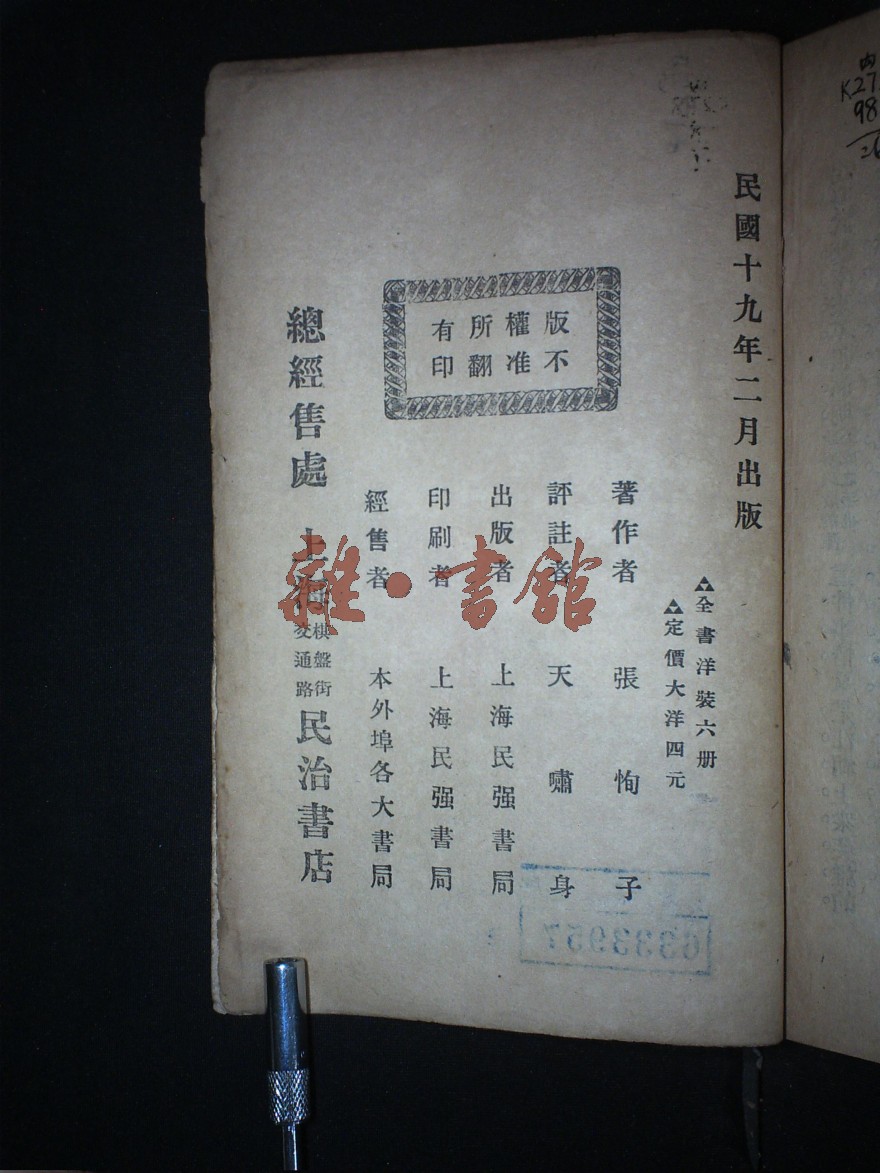 民國十九年二月出版
全書洋裝六册
定價大洋四元
著作者 張恂子
評註者 天嘯身
出版者 上海民强書局
印刷者 上海民强書局
經售者 本外埠各大書局
版權所有
不准翻印
總經售處 上海 棋盤街
交通路 民治書店
雜·書館
6333957
K27
98